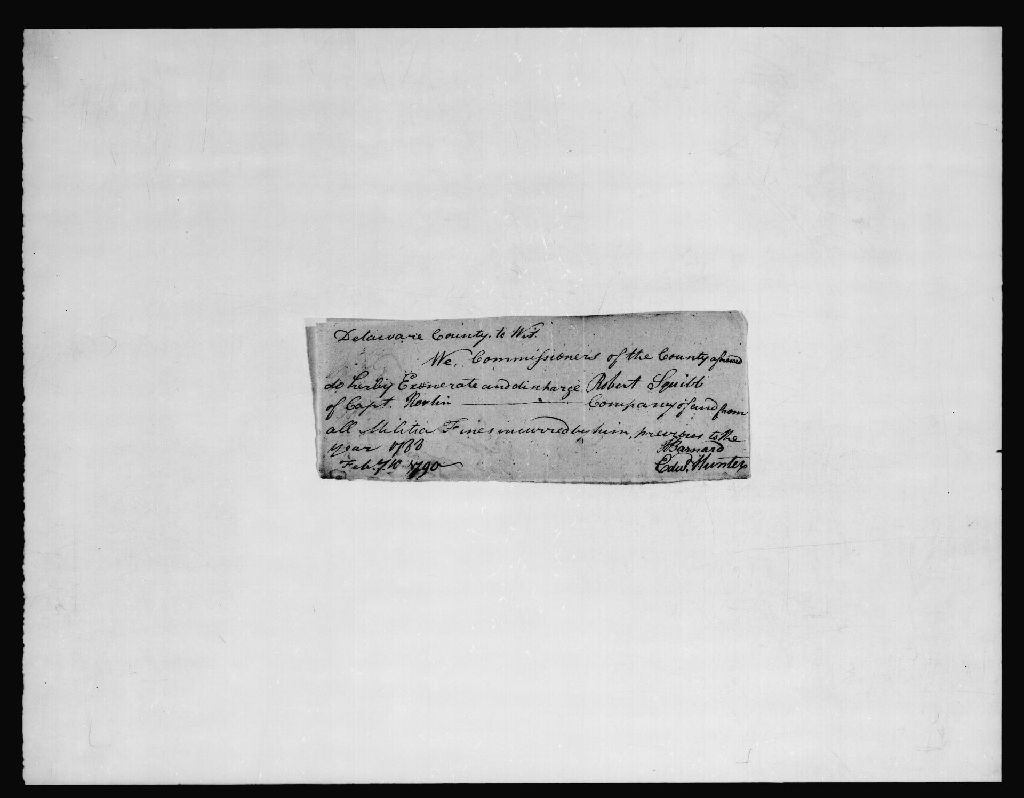 Delaware County, to Wit.
We, Commissioners of the County aforesaid
do hereby Exonerate and discharge Robert Squibb
of Capt. Company of and from
all Militia Fines incurred by him, previous to the
year 1783
Barnard
Feb. 7th 1790
Edwd. Hunter